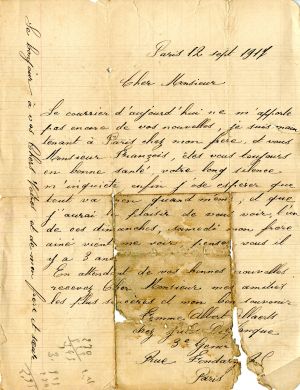 Paris 12 sept 1917
Cher Monsieur
Le courrier d'aujourd'hui ne m'apporte
pas encore de vos nouvelles, je suis main
tenant à Paris chez mon frère, et vous
Monsieur François, êtes vous toujours
en bonne santé, votre long silence
m'inquiète enfin j'ose espérer que
tout va bon quand même, et que
j'aurai le plaisir de vous voir, l'un
de ces dimanches, samedi mon frère
ainé vient me voir, pensez vous il
y a 3 ans
En attendant de vos bonnes nouvelles
recevez Cher Monsieur mes amitiés
les plus sincères et mon bon souvenir
Albert
chez
3e
Rue
Paris
Le bonjour à vos Chers et de mon frère et sœur